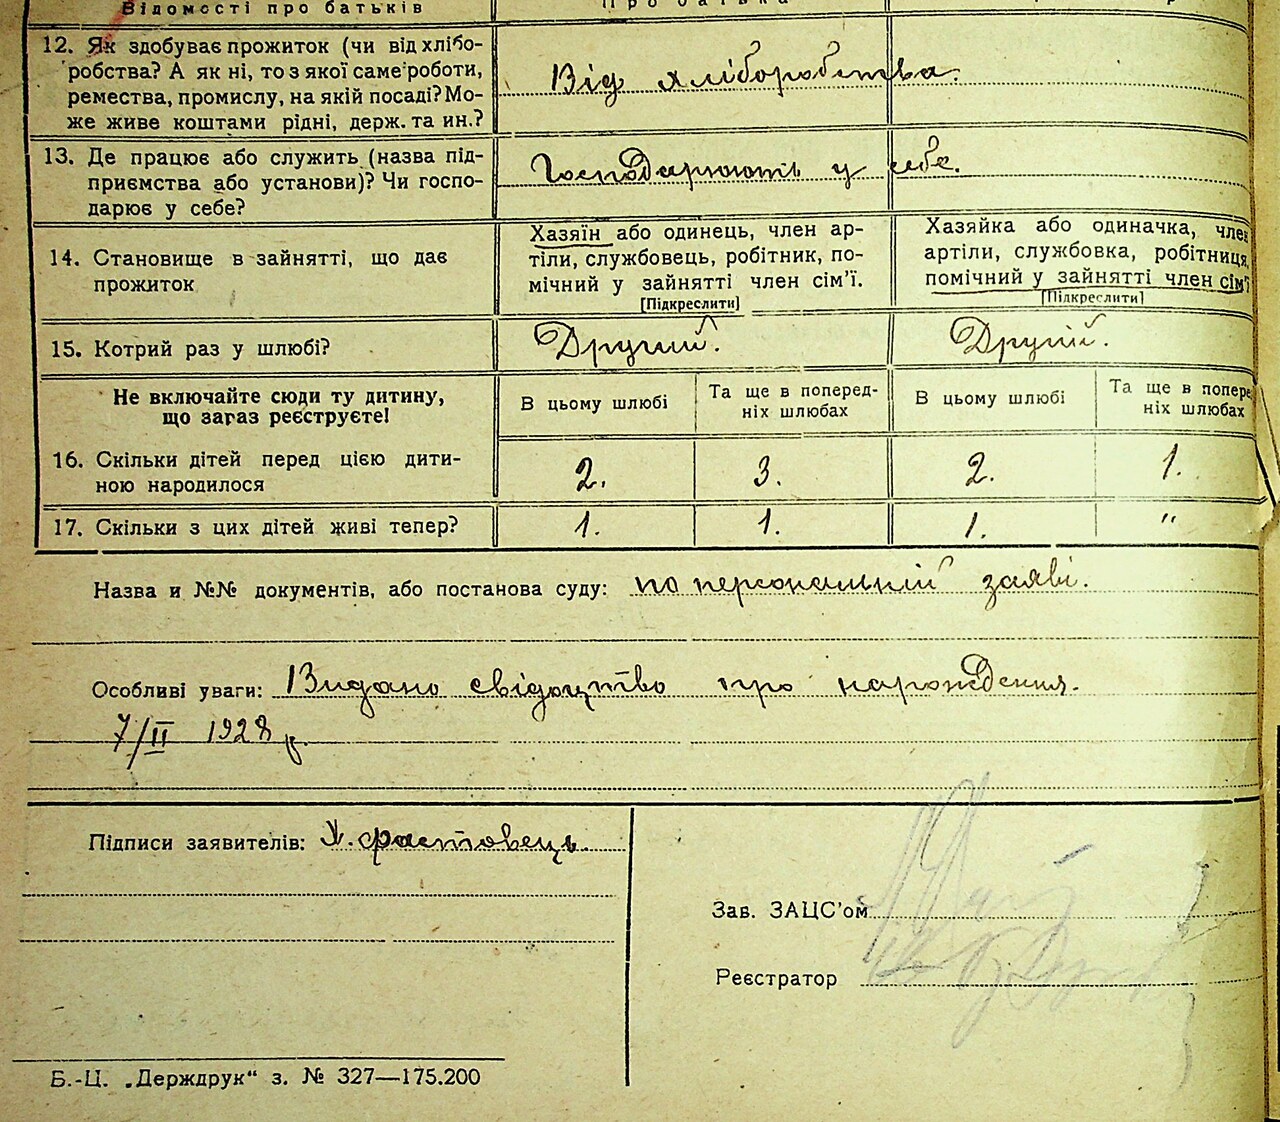 Відомості про батьків
Про батька
12. Як здобуває прожиток (чи від хлібо-
робства? А як ні, то з якої саме роботи,
ремества, промислу, на якій посаді? Мо-
же живе коштами рідні, держ. та ин.?
Від хліборобства.
13. Де працює або служить (назва під-
приємства або установи)? Чи госпо-
дарює у себе?
Господарюють у себе.
14. Становище в зайнятті, що дає
прожиток
Хазяїн або одинець, член ар-
тіли, службовець, робітник, по-
мічний у зайнятті член сім'ї.
[Підкреслити]
Хазяйка або одиначка, член
артіли, службовка, робітниця,
помічний у зайнятті член сім'ї
[Підкреслити]
15. Котрий раз у шлюбі?
Другий.
Другій.
Не включайте сюди ту дитину,
що загаз реєструєте!
В цьому шлюбі
Та ще в поперед-
ніх шлюбах
В цьому шлюбі
Та ще в попере
ніх шлюбах
16. Скільки дітей перед цією дити-
ною народилося
2.
3.
2.
1.
17. Скільки з цих дітей живі тепер?
1.
1.
1.
"
Назва и №№ документів, або постанова суду: по персональній заяві.
Особливі уваги: Видано свідоцтво про нарождення.
7/II 1928 р.
Підписи заявителів: Х. Фастовець.
Зав. ЗАЦС'ом
Реєстратор
Б.-Ц. „Держдрук" з. № 327—175.200